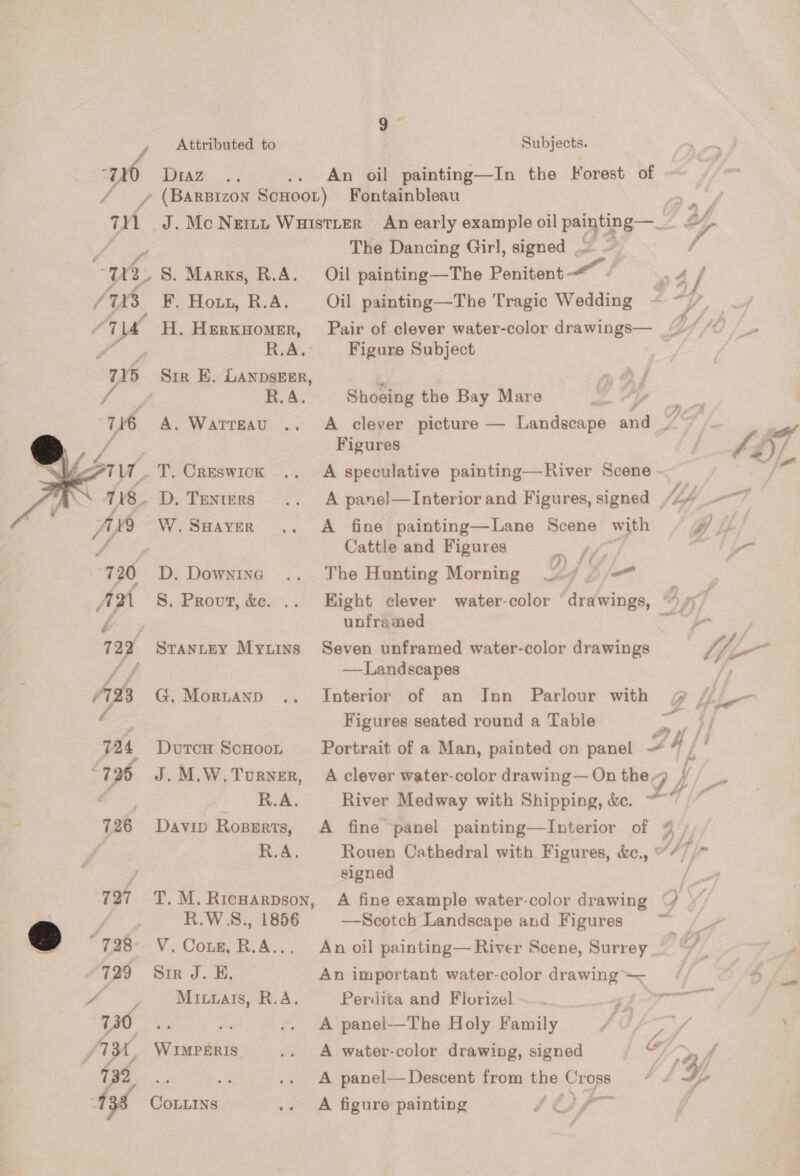 9
Attributed to Subjects.
710 DIAZ .. .. An oil painting—In the Forest of
(BARBIZON SCHOOL) Fontainbleau
711 J. Mc NEILL WHISTLER An early example oil painting—
The Dancing Girl, signed
712 S. MARKS, R.A. Oil painting—The Penitent
713 F. HOLL, R.A. Oil painting—The Tragic Wedding
714 H. HERKHOMER, Pair of clever water-color drawings—
R.A. Figure Subject
715 SIR E. LANDSEER,
R.A. Shoeing the Bay Mare
716 A. WATTEAU .. A clever picture — Landscape and
Figures
717 T. CRESWICK .. A speculative painting—River Scene
718 D. TENIERS .. A panel—Interior and Figures, signed
719 W. SHAYER .. A fine painting—Lane Scene with
Cattle and Figures
720 D. DOWNING .. The Hunting Morning
721 S. PROUT, &c. .. Eight clever water-color drawings,
unframed
722 STANLEY MYLINS Seven unframed water-color drawings
—Landscapes
723 G. MORLAND .. Interior of an Inn Parlour with
Figures seated round a Table
724 DUTCH SCHOOL Portrait of a Man, painted on panel
725 J. M. W. TURNER, A clever water-color drawing—On the
R.A. River Medway with Shipping, &c.
726 DAVID ROBERTS, A fine panel painting—Interior of
R.A. Rouen Cathedral with Figures, &c.,
signed
727 T. M. RICHARDSON, A fine example water-color drawing
R.W.S., 1856 —Scotch Landscape and Figures
728 V. COLE, R.A... An oil painting—River Scene, Surrey
729 SIR J. E. An important water-color drawing—
MILLAIS, R.A. Perdita and Florizel
730 .. .. .. A panel—The Holy Family
731 WIMPERIS .. A water-color drawing, signed
732 .. .. .. A panel—Descent from the Cross
733 COLLINS .. A figure painting